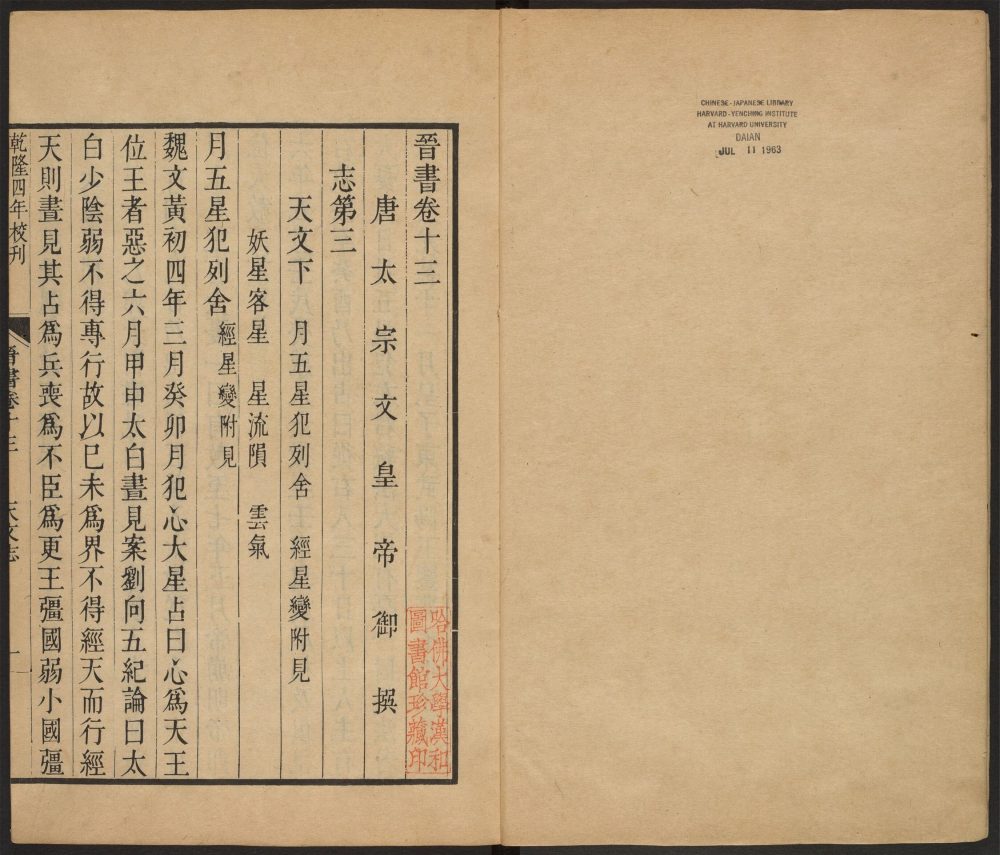 CHINESE-JAPANESE LIBRARY
HARVARD-YENCHING INSTITUTE
AT HARVARD UNIVERSITY
DAIAN
JUL 11 1963
晉書卷十三
唐太宗文皇帝御撰
志第三
天文下 月五星犯列舍 經星變附見
妖星客星 星流隕 雲氣
月五星犯列舍 經星變附見
魏文黃初四年三月癸卯月犯心大星占曰心爲天王
位王者惡之六月甲申太白晝見案劉向五紀論曰太
白少陰弱不得專行故以巳未爲界不得經天而行經
天則晝見其占爲兵喪爲不臣爲更王彊國弱小國彊
乾隆四年校刊
晉書卷十三 天文志 一
哈佛大學漢和
圖書館珍藏印